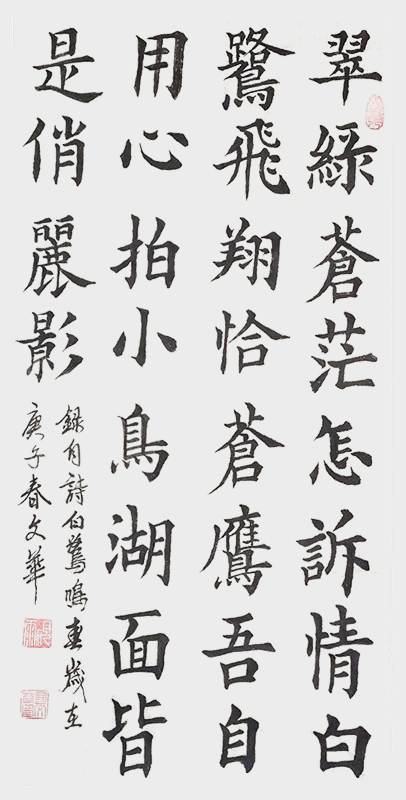 翠綠蒼茫怎訴情白
鷺飛翔恰蒼鷹吾自
用心拍小鳥湖面皆
是俏麗影
錄自詩白鷺鳴春歲在
庚子春文華